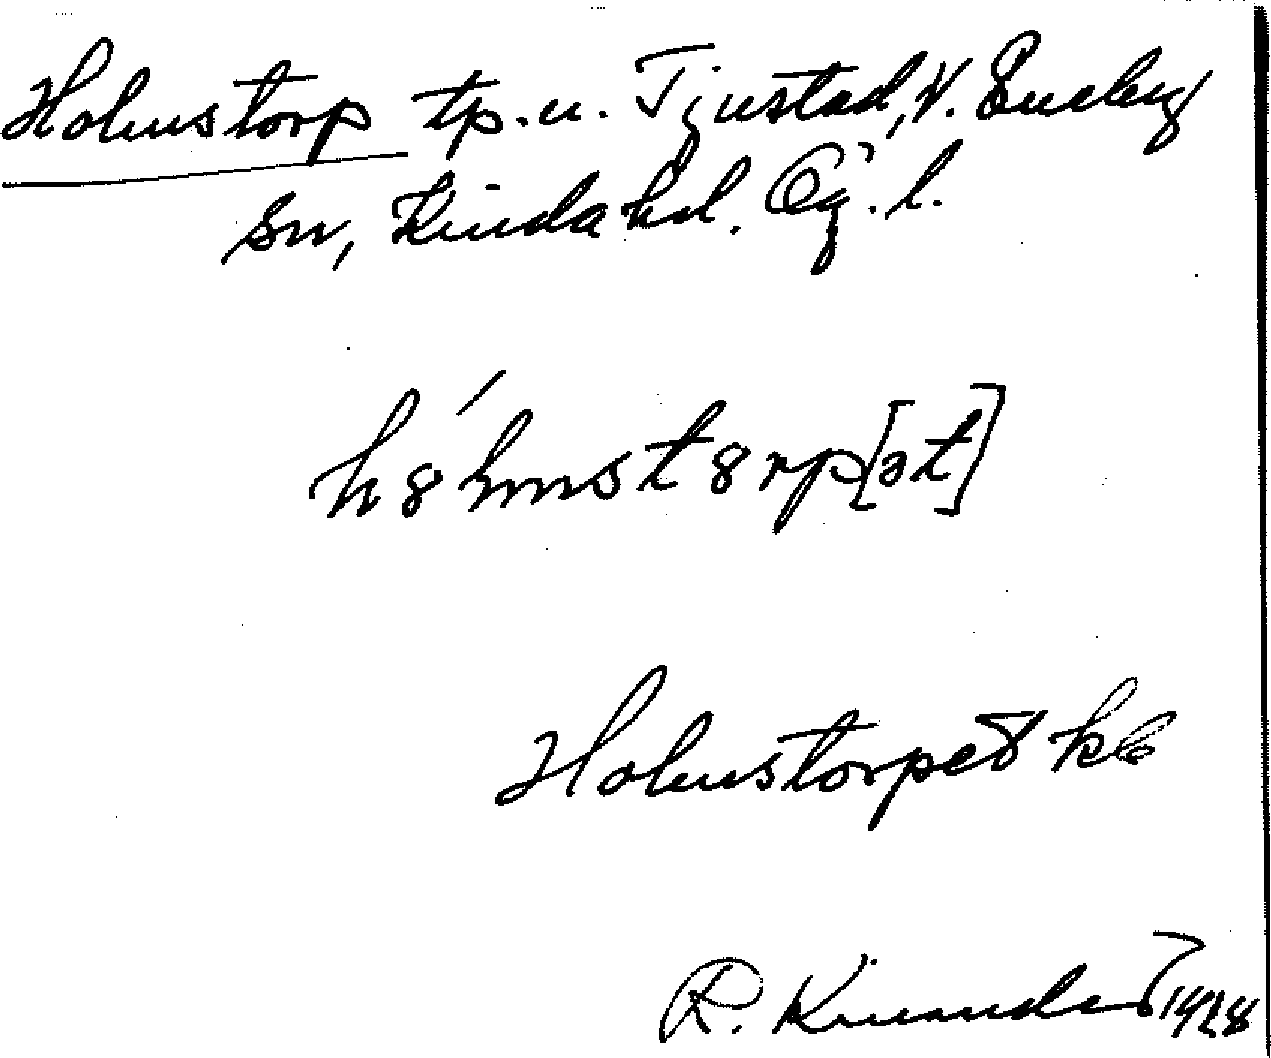 Holmstorp tp. u. Tjustad, V. Eneby
sn, Kinda hd. Ög. l.
h8´lmst8rp[ət]
Holmstorpet kb
R. Kinander 1928